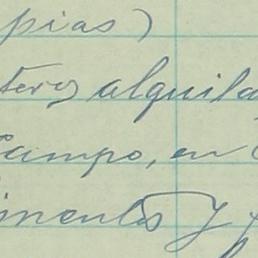 pias)
teros alquila
Campo, en
imentos y